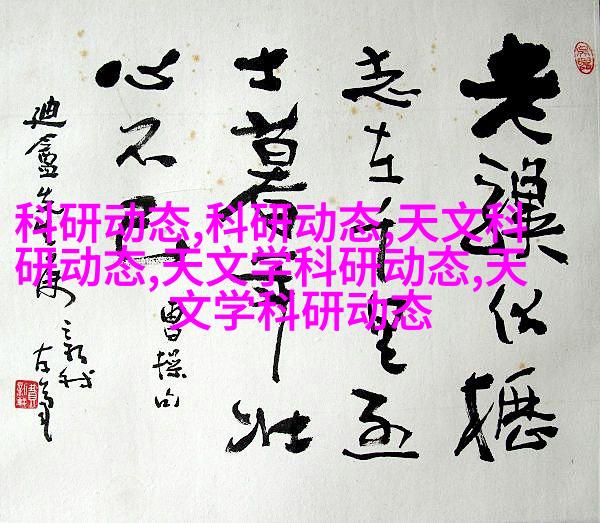 科研动态,科研动态,天文科
研动态,天文学科研动态,天
文学科研动态
老驥伏櫪
志在千里烈
士暮年壮
心不已
曹操句